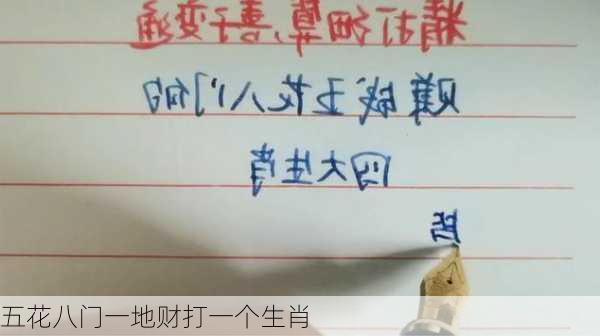 精打细算,善于变通
赚钱五花八门的
四大生肖
五花八门一地财打一个生肖